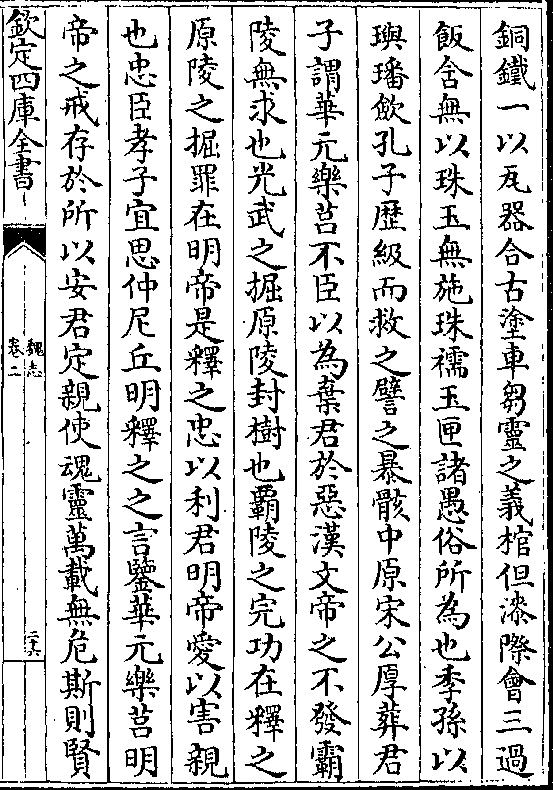 銅鐵一以瓦器合古塗車芻靈之義棺但漆際會三過
飯含無以珠玉無施珠襦玉匣諸愚俗所為也季孫以
璵璠斂孔子歴級而救之譬之暴骸中原宋公厚葬君
子謂華元樂莒不臣以為棄君於惡漢文帝之不發霸
陵無求也光武之掘原陵封樹也霸陵之完功在釋之
原陵之掘罪在明帝是釋之忠以利君明帝愛以害親
也忠臣孝子宜思仲尼丘明釋之之言鑒華元樂莒明
帝之戒存於所以安君定親使魂靈萬載無危斯則賢
欽定四庫全書
魏志
卷二
二十六